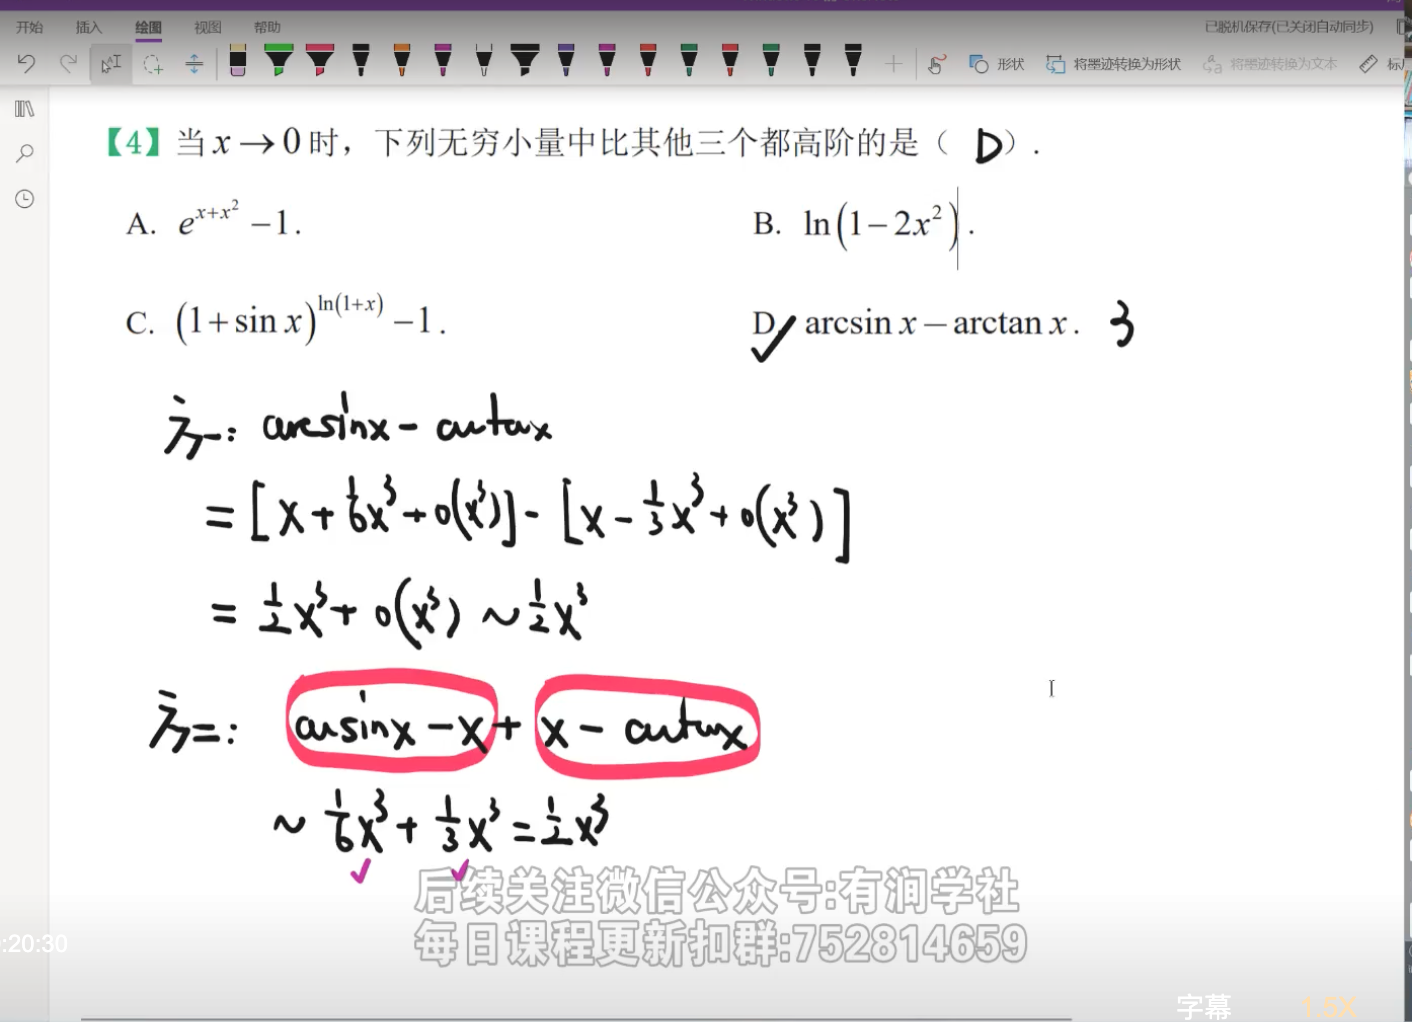 开始 插入 绘图 视图 帮助 已脱机保存(已关闭自动同步)
形状 将墨迹转换为形状 将墨迹转换为文本
【4】当 x→0 时，下列无穷小量中比其他三个都高阶的是（ D ）.
A. e^{x+x^2} −1. B. ln(1−2x^2).
C. (1+sin x)^{ln(1+x)} −1. D. arcsin x − arctan x. 3
方一: arcsinx − arctanx
= [x + 1/6 x^3 + o(x^3)] − [x − 1/3 x^3 + o(x^3)]
= 1/2 x^3 + o(x^3) ~ 1/2 x^3
方二: arcsinx − x + x − arctanx
~ 1/6 x^3 + 1/3 x^3 = 1/2 x^3
后续关注微信公众号:有润学社
每日课程更新扣群:752814659
:20:30
字幕 1.5X